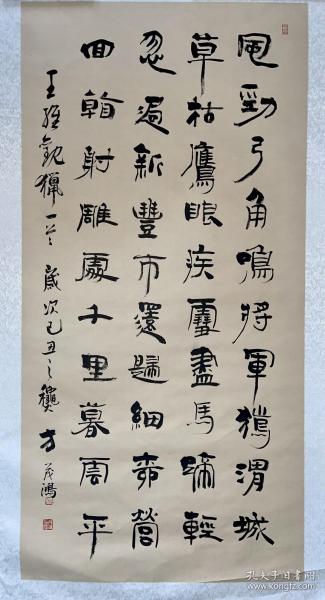 風勁弓角鳴將軍獵渭城
草枯鷹眼疾雪盡馬蹄輕
忽過新豐市還歸細柳營
回看射雕處千里暮雲平
王維觀獵一首 歲次己丑之秋 方茂鴻
孔夫子旧书网